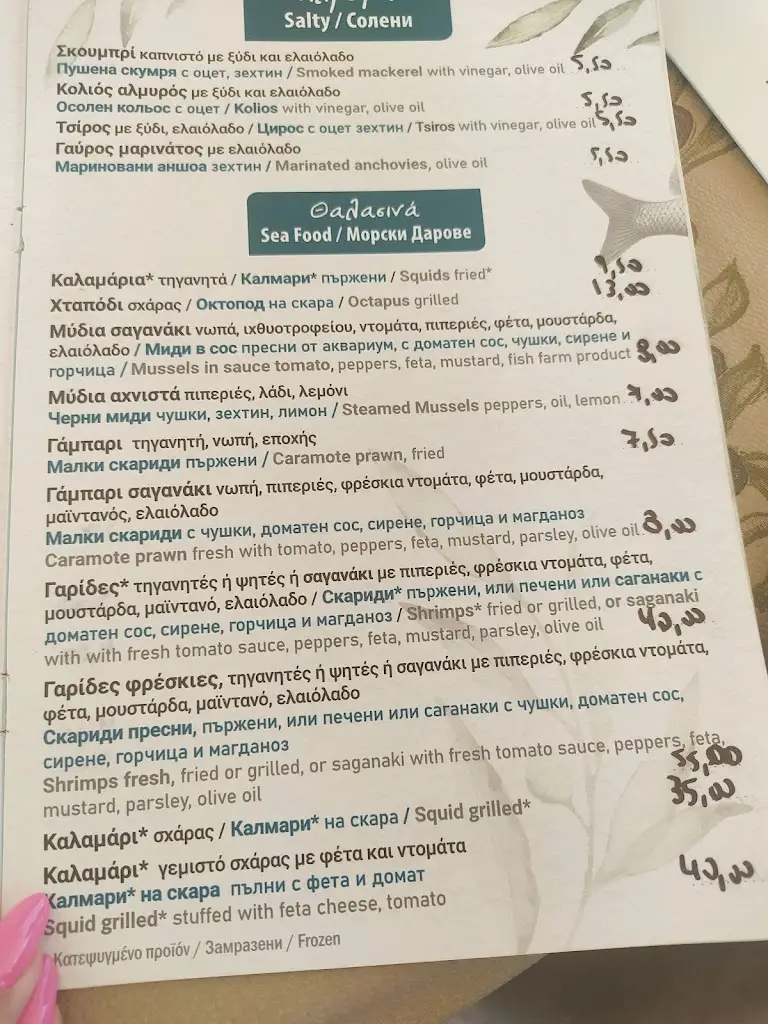 Salty / Солени
Σκουμπρί καπνιστό με ξύδι και ελαιόλαδο
Пушена скумря с оцет, зехтин / Smoked mackerel with vinegar, olive oil 5,50
Κολιός αλμυρός με ξύδι και ελαιόλαδο
Осолен кольос с оцет / Kolios with vinegar, olive oil 5,50
Τσίρος με ξύδι, ελαιόλαδο / Цирос с оцет зехтин / Tsiros with vinegar, olive oil 5,50
Γαύρος μαρινάτος με ελαιόλαδο
Мариновани аншоа зехтин / Marinated anchovies, olive oil 5,50
Θαλασινά
Sea Food / Морски Дарове
Καλαμάρια* τηγανητά / Калмари* пържени / Squids fried* 9,50
Χταπόδι σχάρας / Октопод на скара / Octapus grilled 13,00
Μύδια σαγανάκι νωπά, ιχθυοτροφείου, ντομάτα, πιπεριές, φέτα, μουστάρδα,
ελαιόλαδο / Миди в сос пресни от аквариум, с доматен сос, чушки, сирене и
горчица / Mussels in sauce tomato, peppers, feta, mustard, fish farm product 8,00
Μύδια αχνιστά πιπεριές, λάδι, λεμόνι
Черни миди чушки, зехтин, лимон / Steamed Mussels peppers, oil, lemon 7,00
Γάμπαρι τηγανητή, νωπή, εποχής
Малки скариди пържени / Caramote prawn, fried 7,50
Γάμπαρι σαγανάκι νωπή, πιπεριές, φρέσκια ντομάτα, φέτα, μουστάρδα,
μαϊντανός, ελαιόλαδο
Малки скариди с чушки, доматен сос, сирене, горчица и магданоз
Caramote prawn fresh with tomato, peppers, feta, mustard, parsley, olive oil 8,00
Γαρίδες* τηγανητές ή ψητές ή σαγανάκι με πιπεριές, φρέσκια ντομάτα, φέτα,
μουστάρδα, μαϊντανό, ελαιόλαδο / Скариди* пържени, или печени или саганаки с
доматен сос, сирене, горчица и магданоз / Shrimps* fried or grilled, or saganaki
with with fresh tomato sauce, peppers, feta, mustard, parsley, olive oil 40,00
Γαρίδες φρέσκιες, τηγανητές ή ψητές ή σαγανάκι με πιπεριές, φρέσκια ντομάτα,
φέτα, μουστάρδα, μαϊντανό, ελαιόλαδο
Скариди пресни, пържени, или печени или саганаки с чушки, доматен сос,
сирене, горчица и магданоз
Shrimps fresh, fried or grilled, or saganaki with fresh tomato sauce, peppers, feta,
mustard, parsley, olive oil 55,00
Καλαμάρι* σχάρας / Калмари* на скара / Squid grilled* 35,00
Καλαμάρι* γεμιστό σχάρας με φέτα και ντομάτα
Калмари* на скара пълни с фета и домат
Squid grilled* stuffed with feta cheese, tomato 40,00
* Κατεψυγμένο προϊόν / Замразени / Frozen